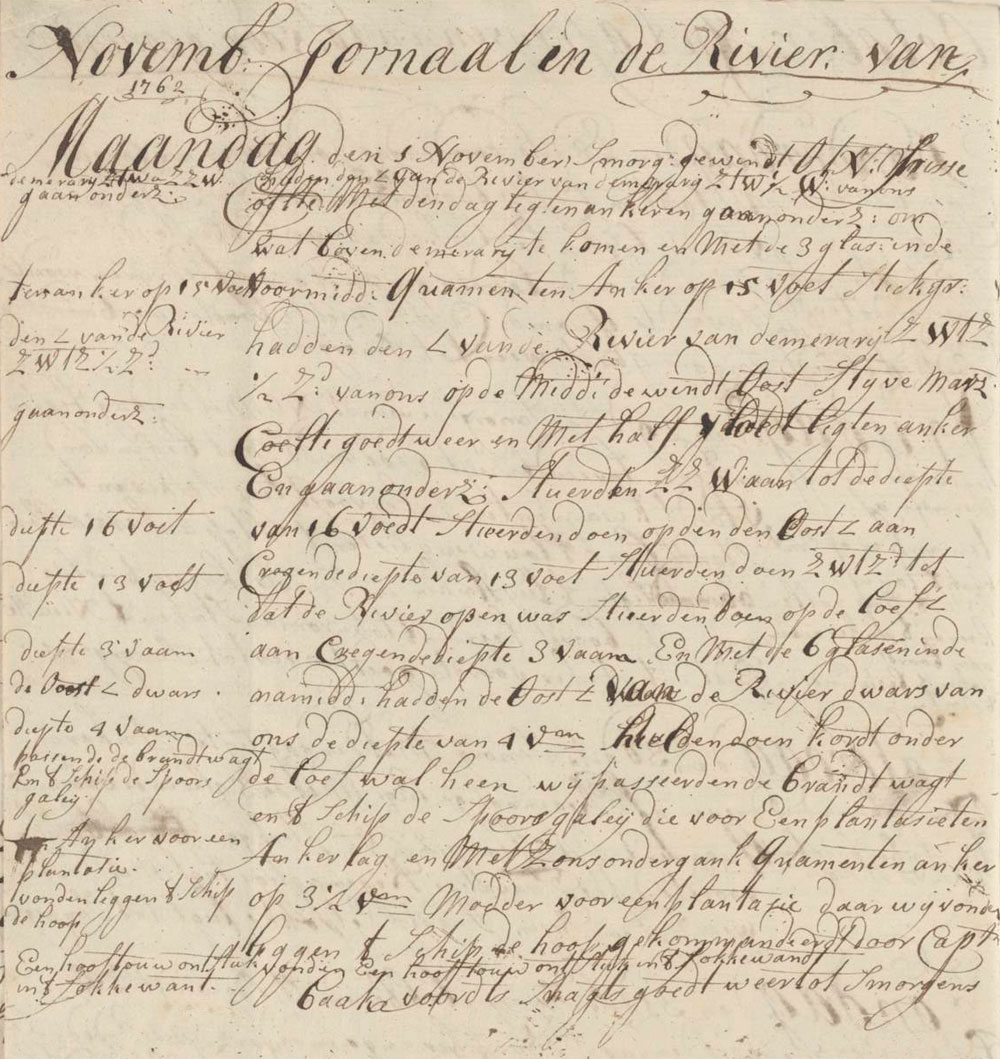 Novemb: Jornaal in de Rivier van
1762
Maandag den 1 November Smorg: de windt frisse
demerary ZtW a ZZW. hadden den L van de Rivier van demerary ZtW ½ W: van ons
gaan onderz: Coelte Met den dag ligten anker en gaan onderz: om
wat boven demerary te komen en Met de 3 glas: in de
ten anker op 15 voet voormidd: Quamen ten Anker op 15 voet Stekgr:
den L van de Rivier hadden den L van de Rivier van demerary ZWtZ
ZWtZ ½ Z: ½ Z: van ons op de Midd: de windt Oost Styve Marz:
gaan onderz: Coelte goedt weer en Met half vloedt ligten anker
En gaan onderz: Stuerden ZZW: aan tot de diepte
diepte 16 voet van 16 voedt Stuerden doen op den den Oost L aan
diepte 13 voet Cregen de diepte van 13 voet Stuerden doen ZWtZ: tot
dat de Rivier open was Stuerden doen op de Loef L
diepte 3 vaam aan Cregen de diepte 3 vaam En Met de 6 glasen in de
de Oost L dwars. namidd: hadden de Oost L van de Rivier dwars van
diepte 4 vaam ons de diepte van 4 vm hielden doen kordt onder
passende de brandtwagt de Loef wal heen wy passeerden de brandt wagt
En t Schip de Spoors galey: en t Schip de Spoors galeij die voor Een plantasie ten
t: Anker voor een Anker lag en Met Zons ondergank Quamen ten anker
plantasie. op 3½ vm Modder voor een plantazie daar wij vonden
vonden leggen t Schip leggen t Schip de hoop gekommandeerdt door Capt:
de hoop
Een hooftouw ont stuk vonden Een hooftouw ont stuk in t fokkewandt
in t fokkewant. Caaks voordts Snagts goedt weer tot Smorgens